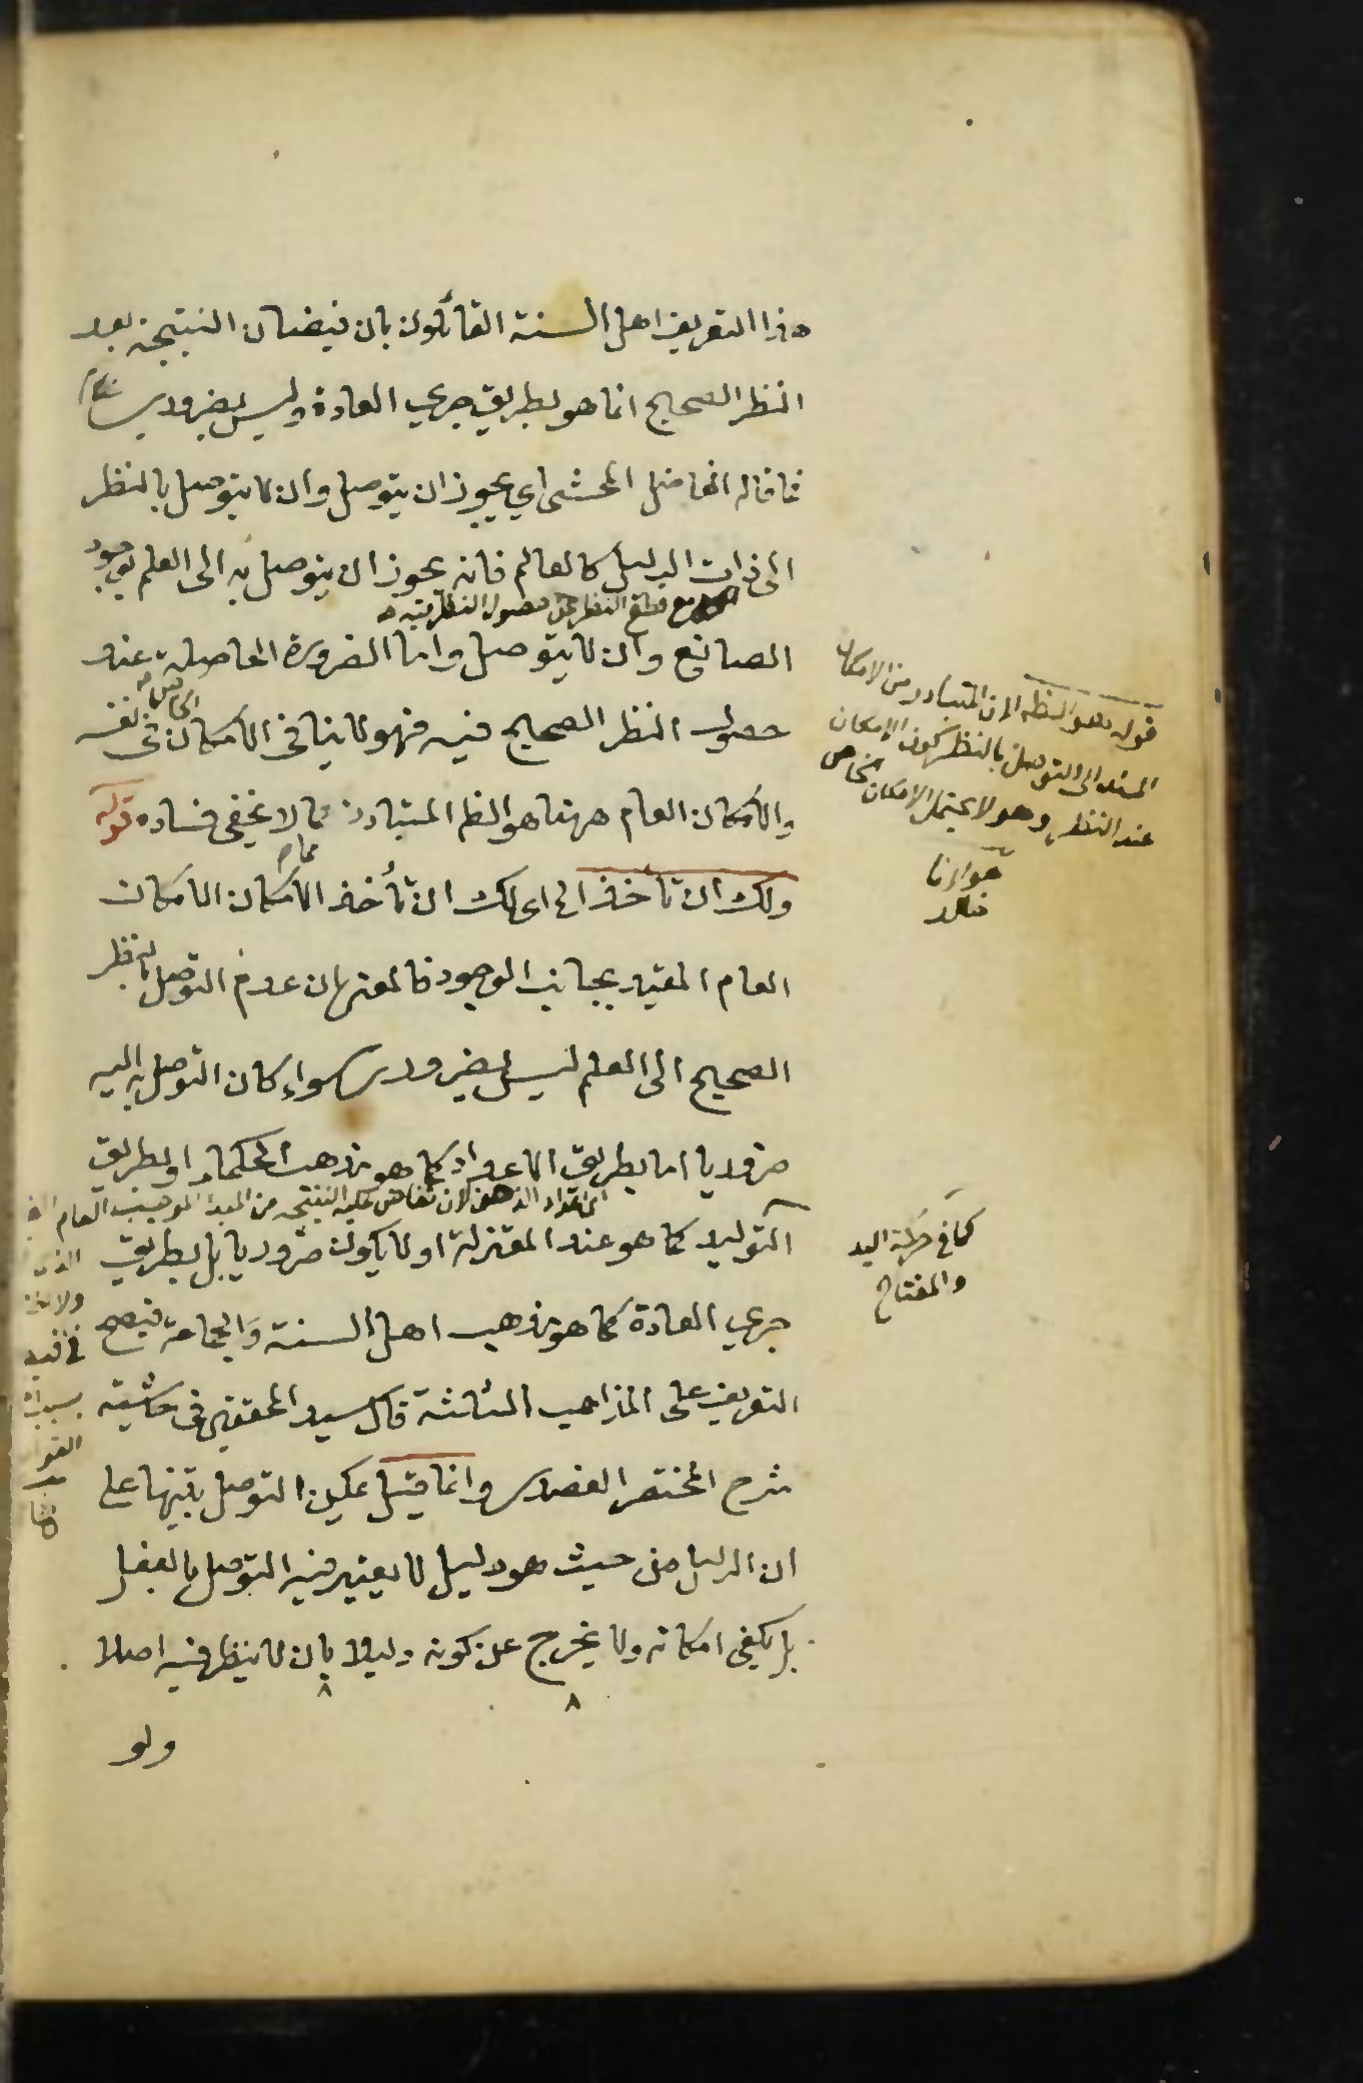 هذا التعريف اهل السنة القائلون بان فيضان النتيجة بعد
النظر الصحيح انما هو بطريق جري العادة وليس بضروري
فما قاله الفاضل المحشى اي يجوز ان يتوصل وان لا يتوصل بالنظر
الى ذات الدليل كالعالم فانه يجوز ان يتوصل به الى العلم بوجود
مع قطع النظر عن حصول النظر فيه
الصانع وان لا يتوصل واما الضرورة الحاصلة عند
حصول النظر الصحيح فيه فهو لا ينافى الامكان فى نفسه
والامكان العام ههنا هو الظ المتبادر مما لا يخفى فساده قوله
ولك ان تأخذ الخ اى لك ان تأخذ الامكان الامكان
العام المقيد بجانب الوجود فالمعنى ان عدم التوصل بالنظر
الصحيح الى العلم ليس بضروري سواء كان التوصل به اليه
ضروريا اما بطريق الاعداد كما هو مذهب الحكماء او بطريق
التوليد كما هو عند المعتزلة او لا يكون ضروريا بل بطريق
جري العادة كما هو مذهب اهل السنة والجماعة فيصح
التعريف على المذاهب الثلثة قال سيد المحققين فى حاشيته
شرح المختصر العضدى وانما قيل يمكن التوصل تنبيها على
ان الدليل من حيث هو دليل لا يعتبر فيه التوصل بالفعل
بل يكفى امكانه ولا يخرج عن كونه دليلا بان لا ينظر فيه اصلا
ولو
قوله هو الظ الان المتبادر من الامكان
المسند الى التوصل بالنظر كون الامكان
عند النظر وهو لا يحتمل الامكان الخاص
خالد
كما فى حركة اليد
والمفتاح